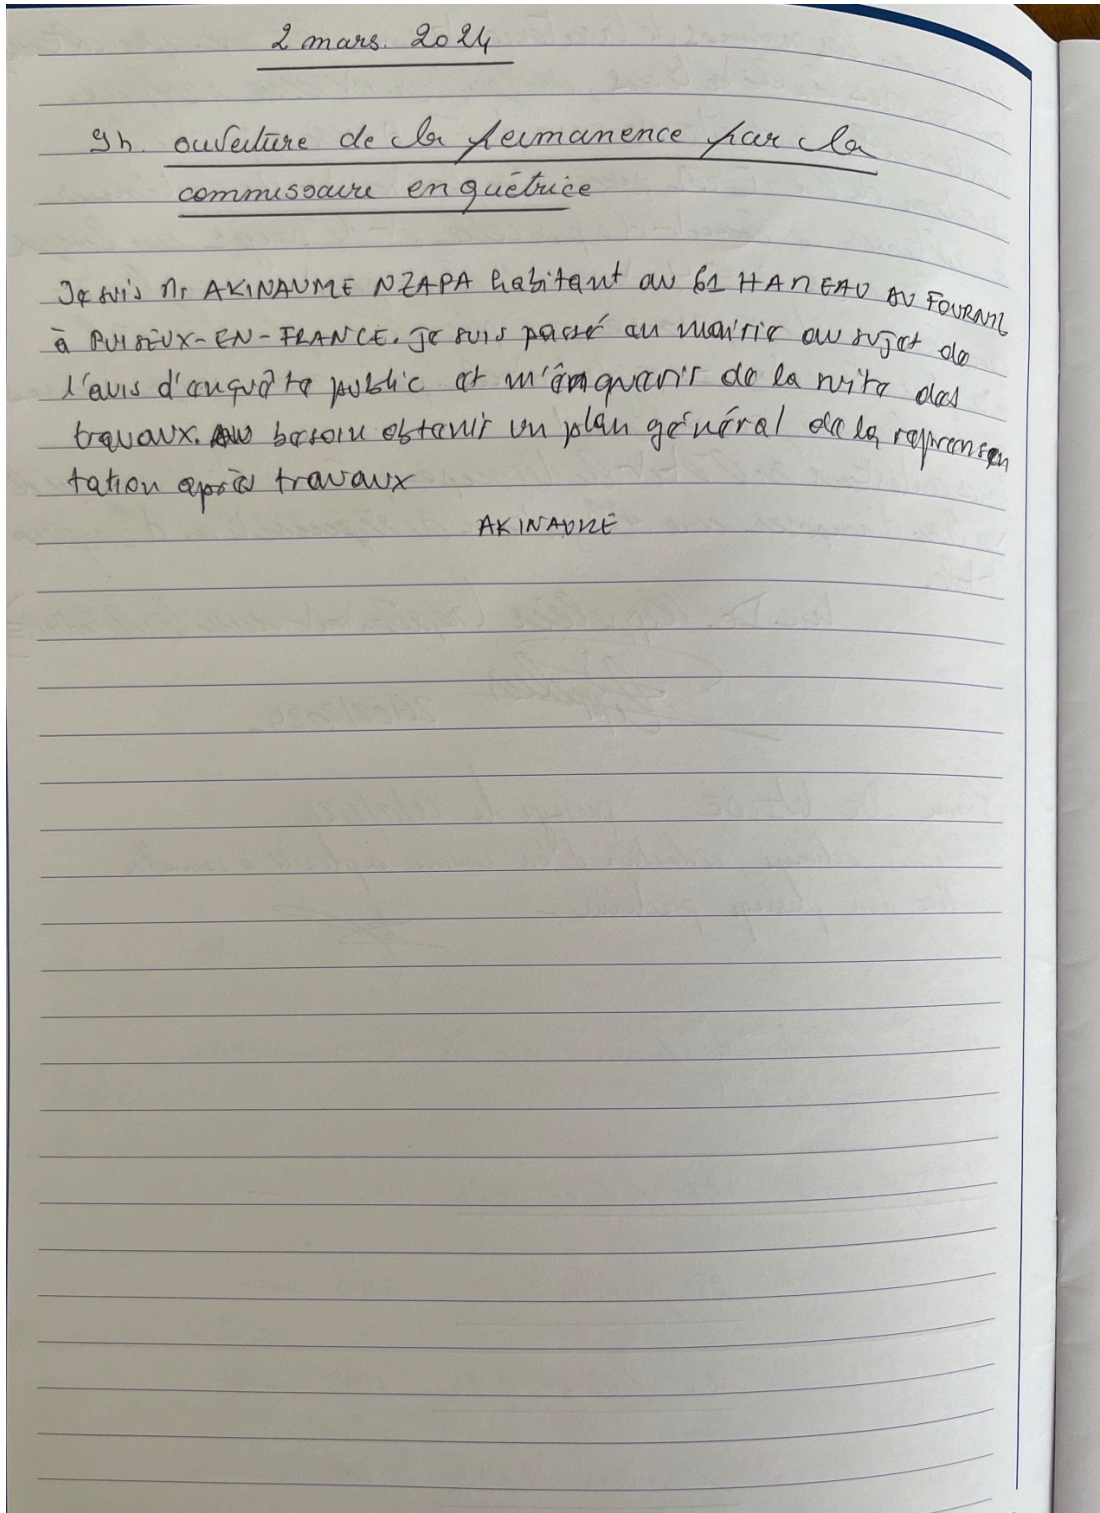 2 mars. 2024
9h. ouverture de la permanence par la
commissaire enquêtrice
Je suis Mr AKINAUME NZAPA habitant au 61 HAMEAU DU FOURNIL
à PUISEUX-EN-FRANCE. je suis passé au mairie au sujet de
l'avis d'enquête public et m'enquerir de la suite des
travaux. besoin obtenir un plan général de la représen
tation après travaux
AKINAUME